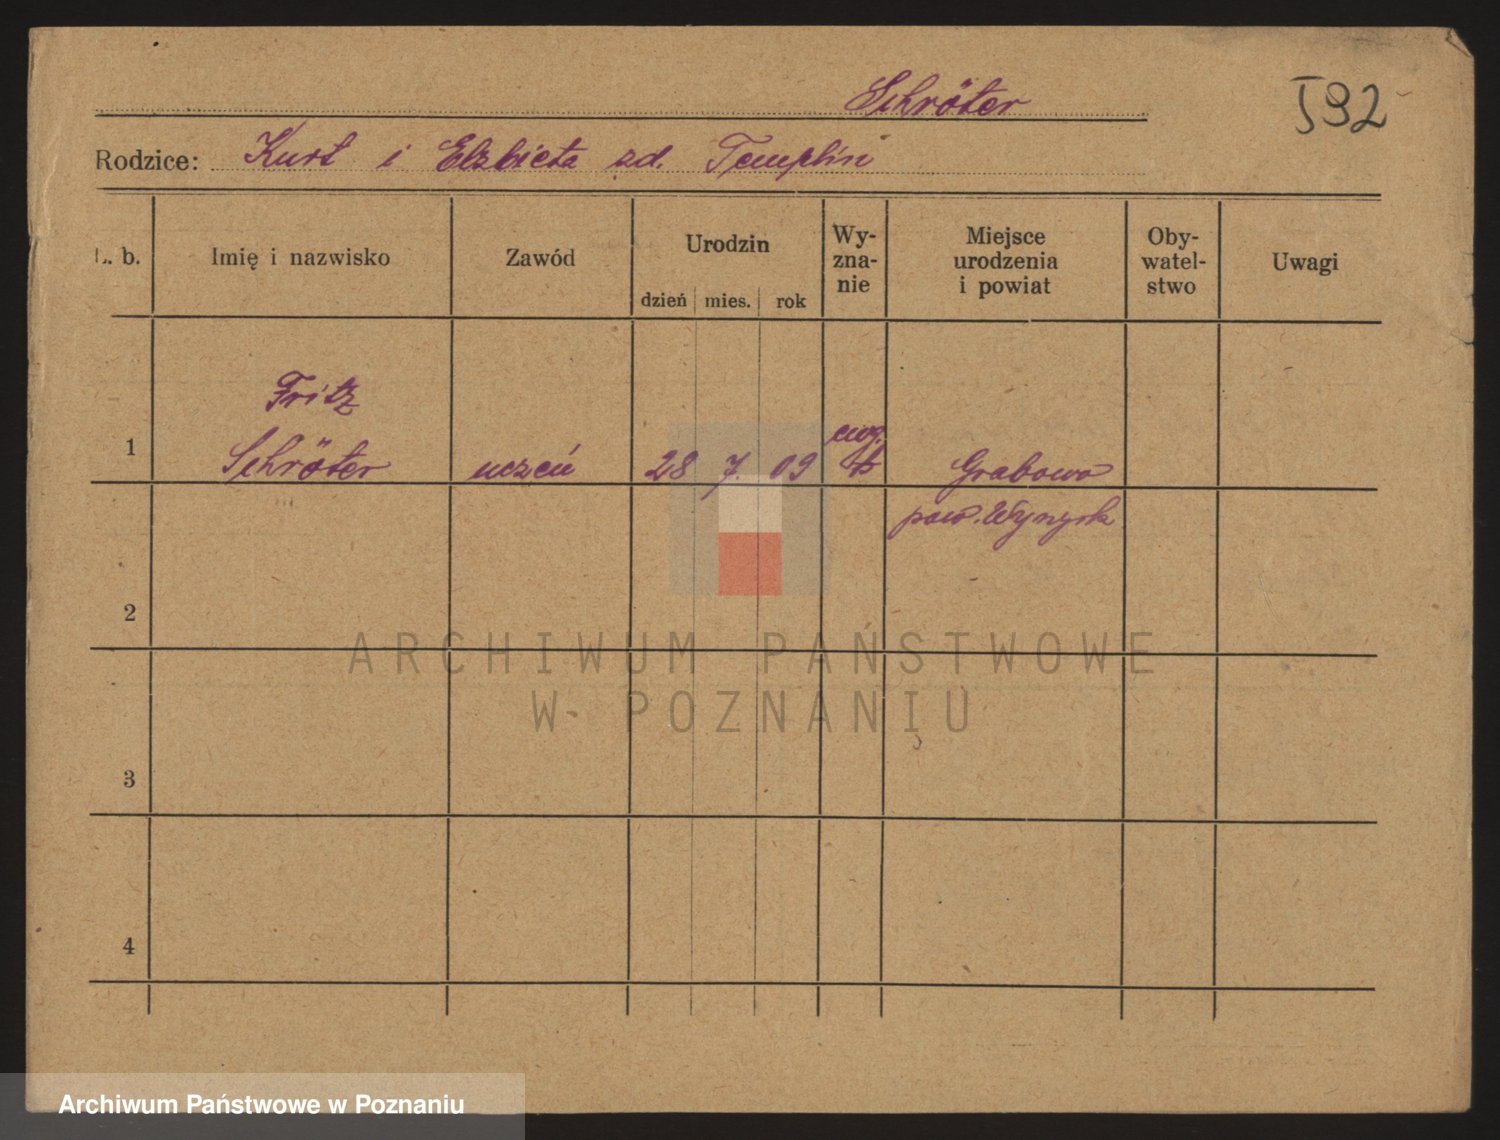 Schröter
592
Rodzice: Kurt i Elzbieta zd. Templin
L. b.
Imię i nazwisko
Zawód
Urodzin
dzień mies. rok
Wy-
zna-
nie
Miejsce
urodzenia
i powiat
Oby-
watel-
stwo
Uwagi
Fritz
1 Schröter uczeń 28 7. 09 ewg. Grabowo
pow. Wyrzysk
2
3
4
ARCHIWUM PAŃSTWOWE
W POZNANIU
Archiwum Państwowe w Poznaniu